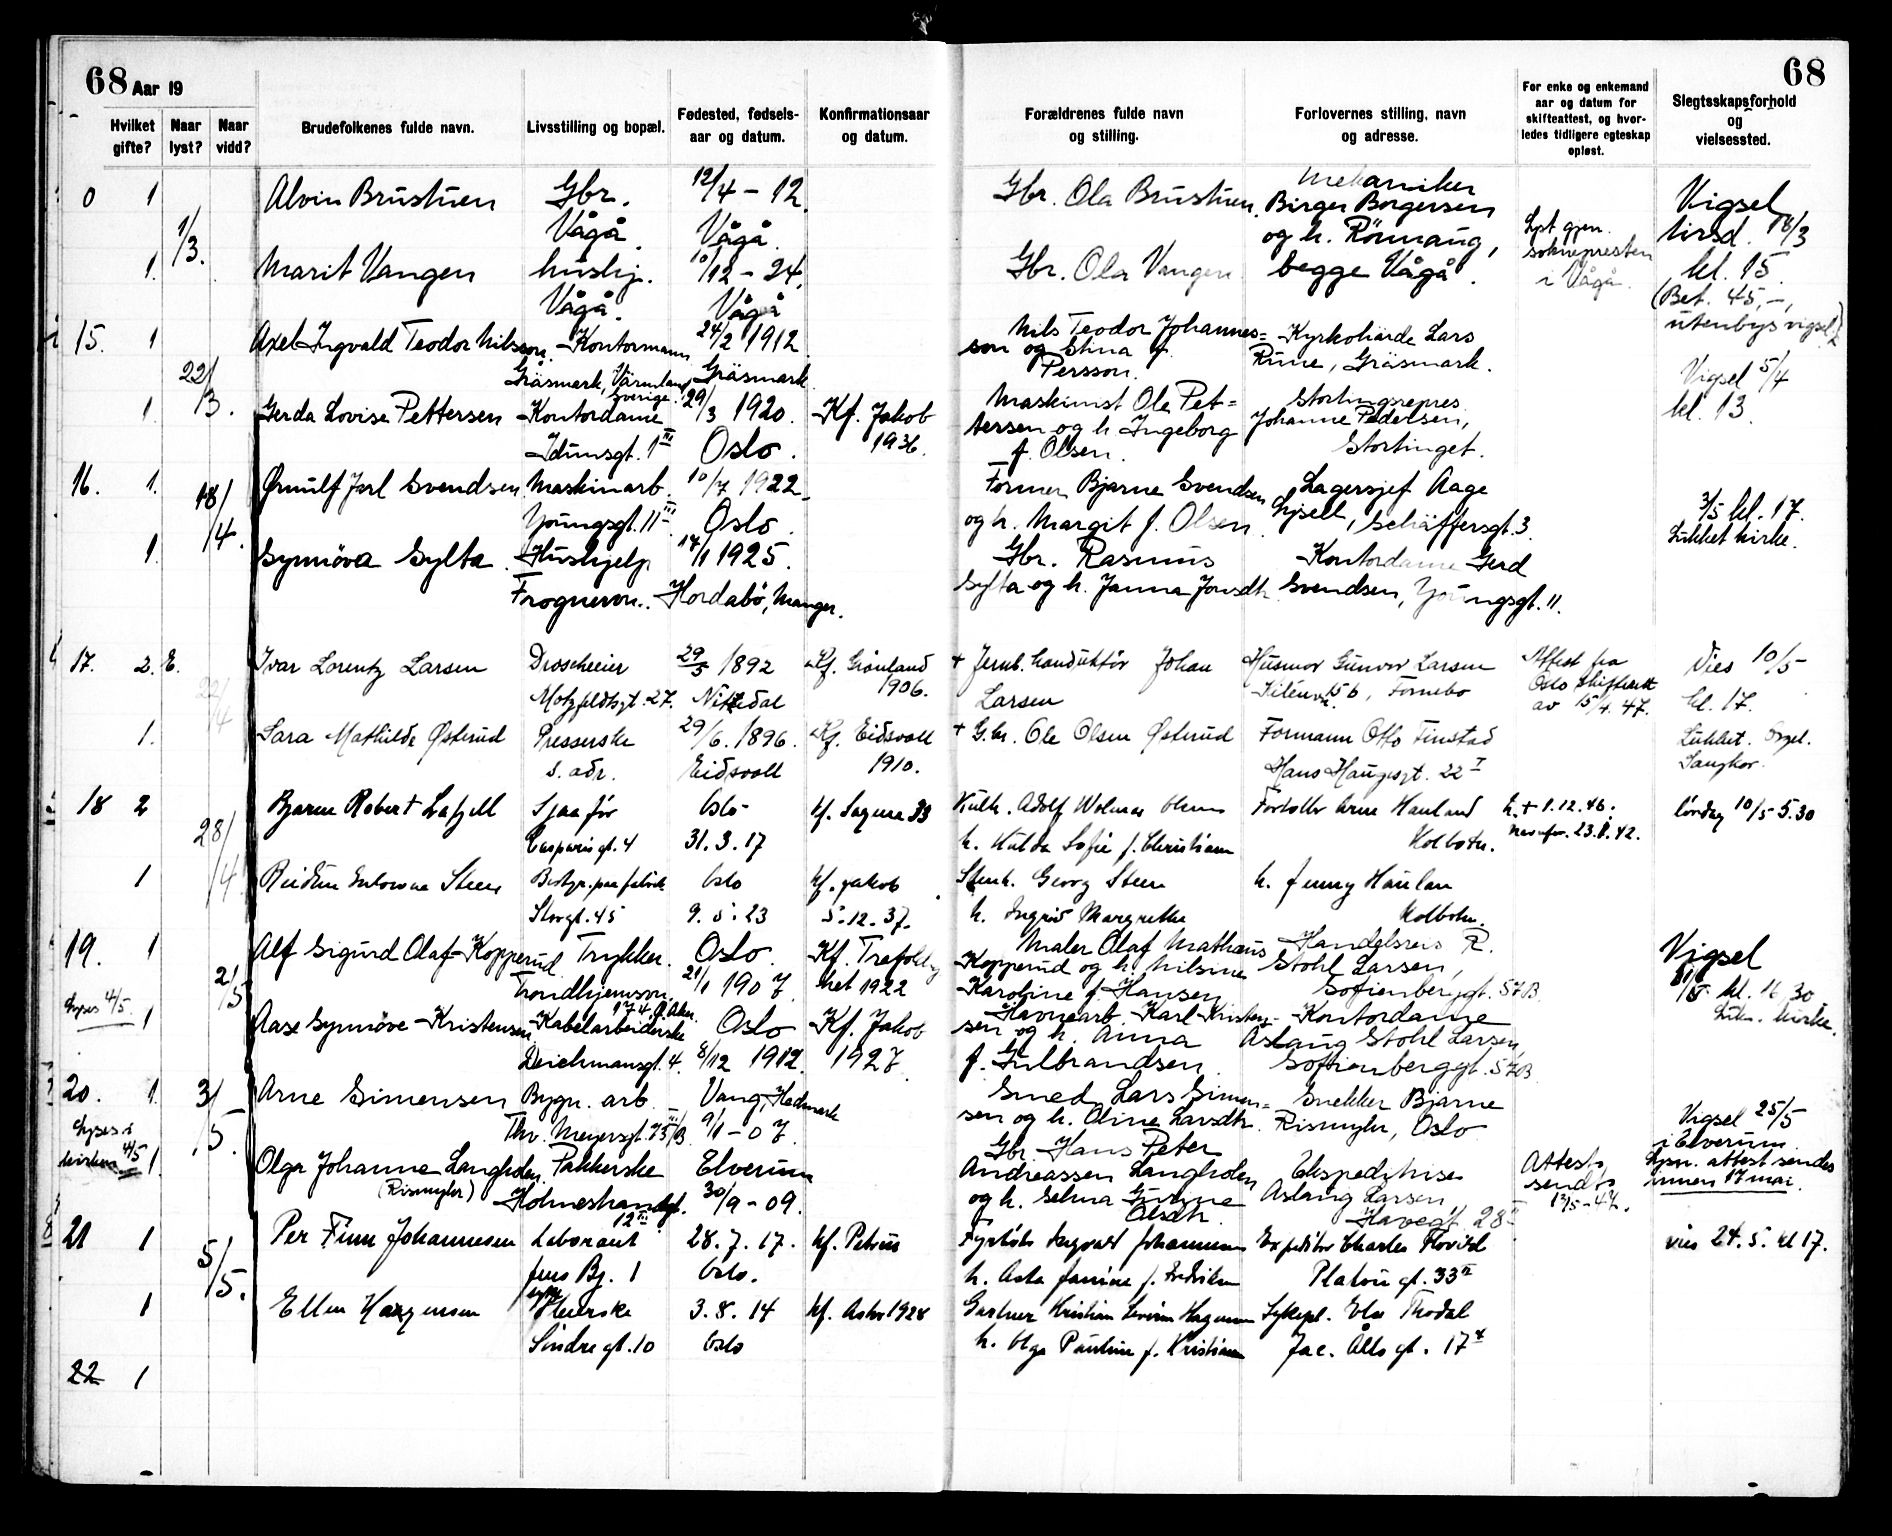 68 Aar 19
68
Hvilket gifte?
Naar lyst?
Naar vidd?
Brudefolkenes fulde navn.
Livsstilling og bopæl.
Fødested, fødsels-
aar og datum.
Konfirmationsaar
og datum.
Forældrenes fulde navn
og stilling.
Forlovernes stilling, navn
og adresse.
For enke og enkemand
aar og datum for
skifteattest, og hvor-
ledes tidligere egteskap
opløst.
Slegtsskapsforhold
og
vielsessted.
0 1 Alvin Brustuen Gbr. 12/4 - 12. Gbr. Ola Brustuen. Mekaniker
Birger Borgersen
Vigsel
1/3. Vågå. Vågå. og h. Rönnaug, Lyst gjen. tirsd. 18/3
1. Marit Vangen hushj. 10/12 - 24. Gbr. Ola Vangen begge Vågå. soknepresten kl. 15.
Vågå. Vågå i Vågå. (Bet. 45,-,
utenbys vigsel)
15. 1 Axel Ingvald Teodor Nilsson. Kontormann 24/2 1912 Nils Teodor Johannes= Kyrkohärde Lars
22/3. Gräsmark, Värmland, Sverige. Gräsmark. son og Stina f. Persson. Rune, Gräsmark. Vigsel 5/4
1. Gerda Lovise Pettersen Kontordame 29/3 1920. Kf. Jakob Maskinist Ole Pet= Stortingsrepres. kl. 13.
Idunsgt. 1 III Oslo. 1936. tersen og h. Ingeborg Johanne Pedersen,
f. Olsen. Stortinget.
16. 1. Ørnulf Jarl Svendsen Maskinarb. 10/7 1922. Former Bjarne Svendsen Lagersjef Aage
18/4. Youngsgt. 11 III Oslo. og h. Margit f. Olsen. Gjsell, Schäffersgt. 3. 3/5 kl. 17.
1. Synnöva Sylta. Hushjelp 14/1 1925. Gbr. Rasmus Kontordame Gerd Lukket kirke.
Frognerv. Hordabö, Manger. Sylta og h. Janna Jonsdtr. Svendsen, Youngsgt. 11.
17. 2. E. Ivar Lorentz Larsen Droscheeier 29/5 1892 Kf. Grønland + Jernb. konduktør Johan Husmor Gunvor Larsen Attest fra Vies 10/5
22/4 Motzfeldtsgt. 27. Nittedal 1906. Larsen 15 b, Fornebo Oslo Skifterett kl. 17.
av 15/4. 47.
1. Sara Mathilde Østerud Presserske 29/6. 1896. Kf. Eidsvoll + G.br. Ole Olsen Østerud Formann Otto Finstad Lukket. Orgel.
s. adr. Eidsvoll 1910. Hans Haugesgt. 22 I Sangkor.
18 2 Bjarne Robert Lafjell Sjaafør Oslo Kf. Sagene 33 Adolf Wolmar Arne Hauland h. + 1.12.46. lørdag 10/5 5.30
28/4 Casparisgt. 4 31.3.17 h. Hulda Sofie f. Christiansen Kolbotn. 23.8.42.
1 Reidun Steen paa fabrik Oslo Kf. Jakob Georg Steen h. Jenny Haulan
Storgt. 45 9.5.23 5.12.37. h. Ingrid Margrethe Kolbotn.
19. 1 Alf Sigurd Olaf Kopperud Trykker. Oslo. Kf. Trefoldig Maler Olaf Mathæus Handelsreis R. Vigsel
2/5 Trondhjemsvn. 174, Ø. Aker. 21/1 1907 het 1922 Kopperud og h. Nilsine Stohl Larsen,
Karoline f. Hansen Sofienberggt. 57B. kl. 16 30
Lyses 4/5. 1 Aase Synnöve Kristensen Kabelarbeiderske Oslo Kf. Jakob Havnearb. Karl Kristen- Kontordame Luk. kirke.
Deichmansgt. 4. 8/12 1912. 1927. sen og h. Anna Aslaug Stohl Larsen,
f. Gulbrandsen. Sofienberggt. 57B
20. 1. Arne Simensen Bygn. arb. Vang, Hedmark Smed Lars Simen= Snekker Bjarne
3/5. Thv. Meyersgt. 75 III/B 9/1 - 07. sen og h. Oline Larsdtr. Rismyhr, Oslo Vigsel 25/5
Lyses i kirken 4/5 1. Olga Johanne Langholen, Pakkerske Elverum Gbr. Hans Peter Ekspeditrise Attest i Elverum
(Rismyhr) Holmestrandgt. 12 III. 30/9 - 09. Andreassen Langholen Aslaug Larsen sendt Lysn. attest sendes
og h. Selma Olsdtr. 28 II 12/5-47. innen 17 mai.
21 1 Per Finn Johannesen Laborant 28.7.17. Kf. Petrus Fyrbøt. Ingvald Johannesen Ekspeditør Charles Flovild vies 24.5. kl 17.
5/5. Bj. 1 Oslo. h. Asta Janine f. Fredriksen Platou gt. 33 II
1 Ellen Hagensen 3.8.14 Kf. Asker 1928 Gartner Kristian Severin Hagensen Sykepl. Else Thodal
Søndre gt. 10 Oslo h. Olga Pauline f. Kristiansen Jac. Ålls gt. 17
22 1